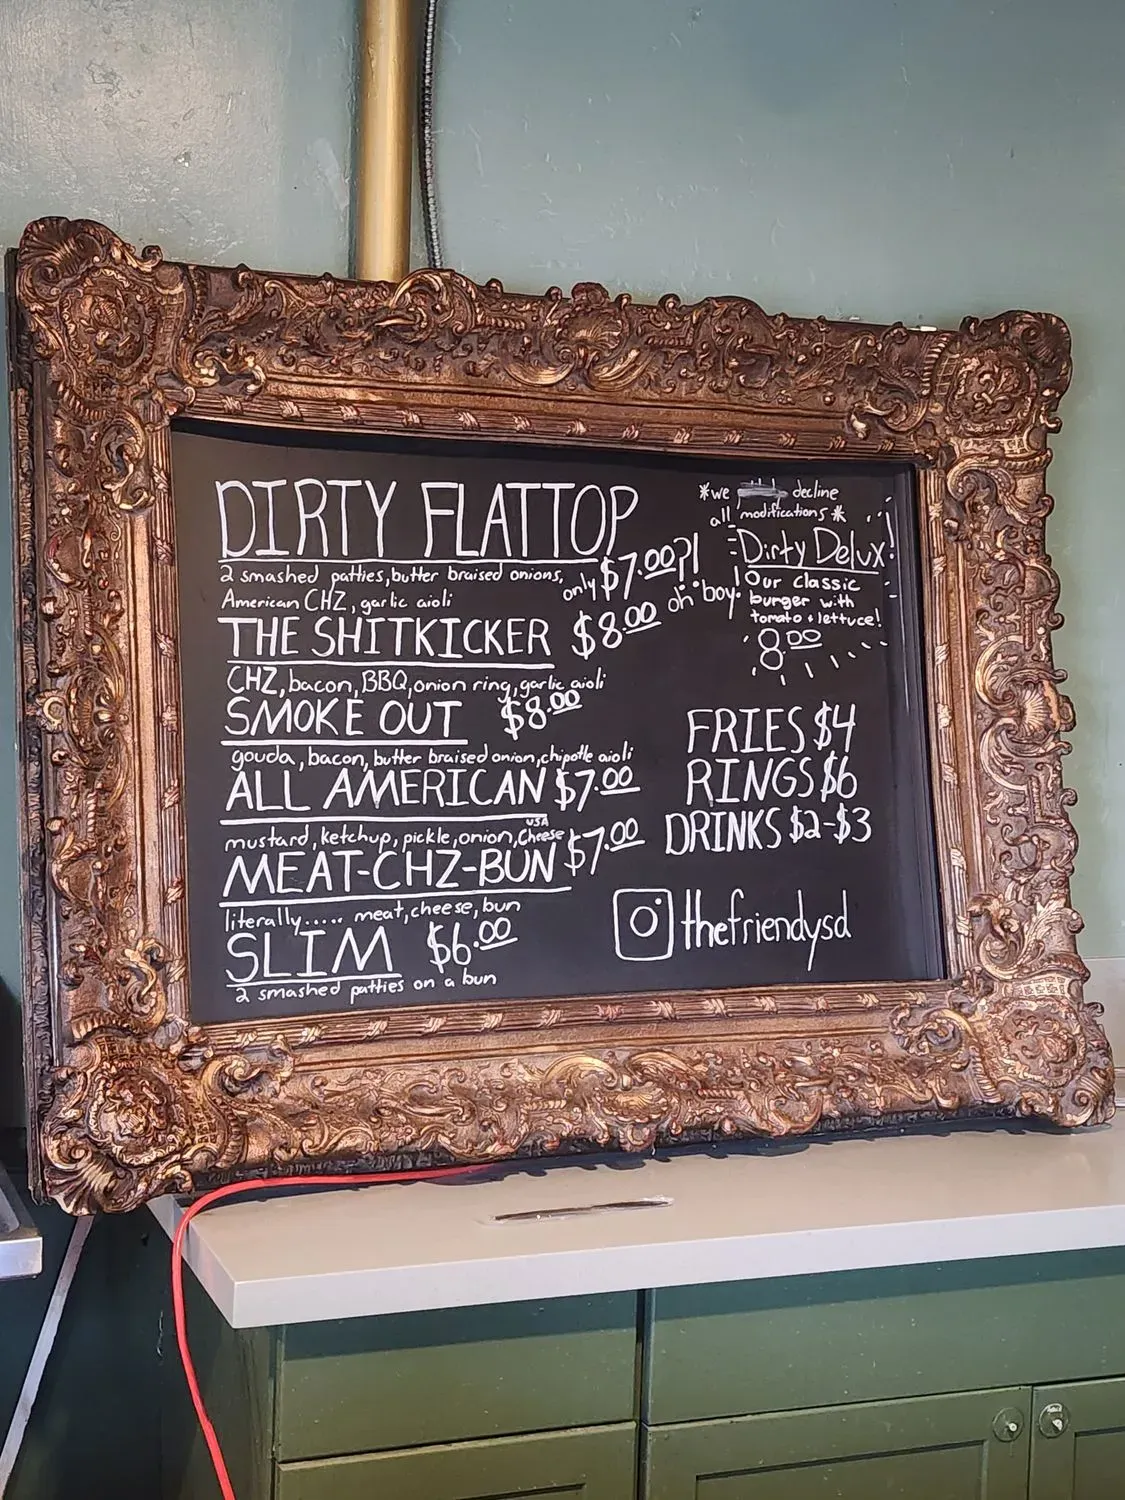 DIRTY FLATTOP
2 smashed patties, butter braised onions,
American CHZ, garlic aioli
only $7.00?!
oh boy!
THE SHITKICKER $8.00
CHZ, bacon, BBQ, onion ring, garlic aioli
SMOKE OUT $8.00
gouda, bacon, butter braised onion, chipotle aioli
ALL AMERICAN $7.00
mustard, ketchup, pickle, onion, USA Cheese
MEAT-CHZ-BUN $7.00
literally..... meat, cheese, bun
SLIM $6.00
2 smashed patties on a bun
*we decline
all modifications*
Dirty Delux!
Our classic
burger with
tomato & lettuce!
8.00
FRIES $4
RINGS $6
DRINKS $2-$3
thefriendysd